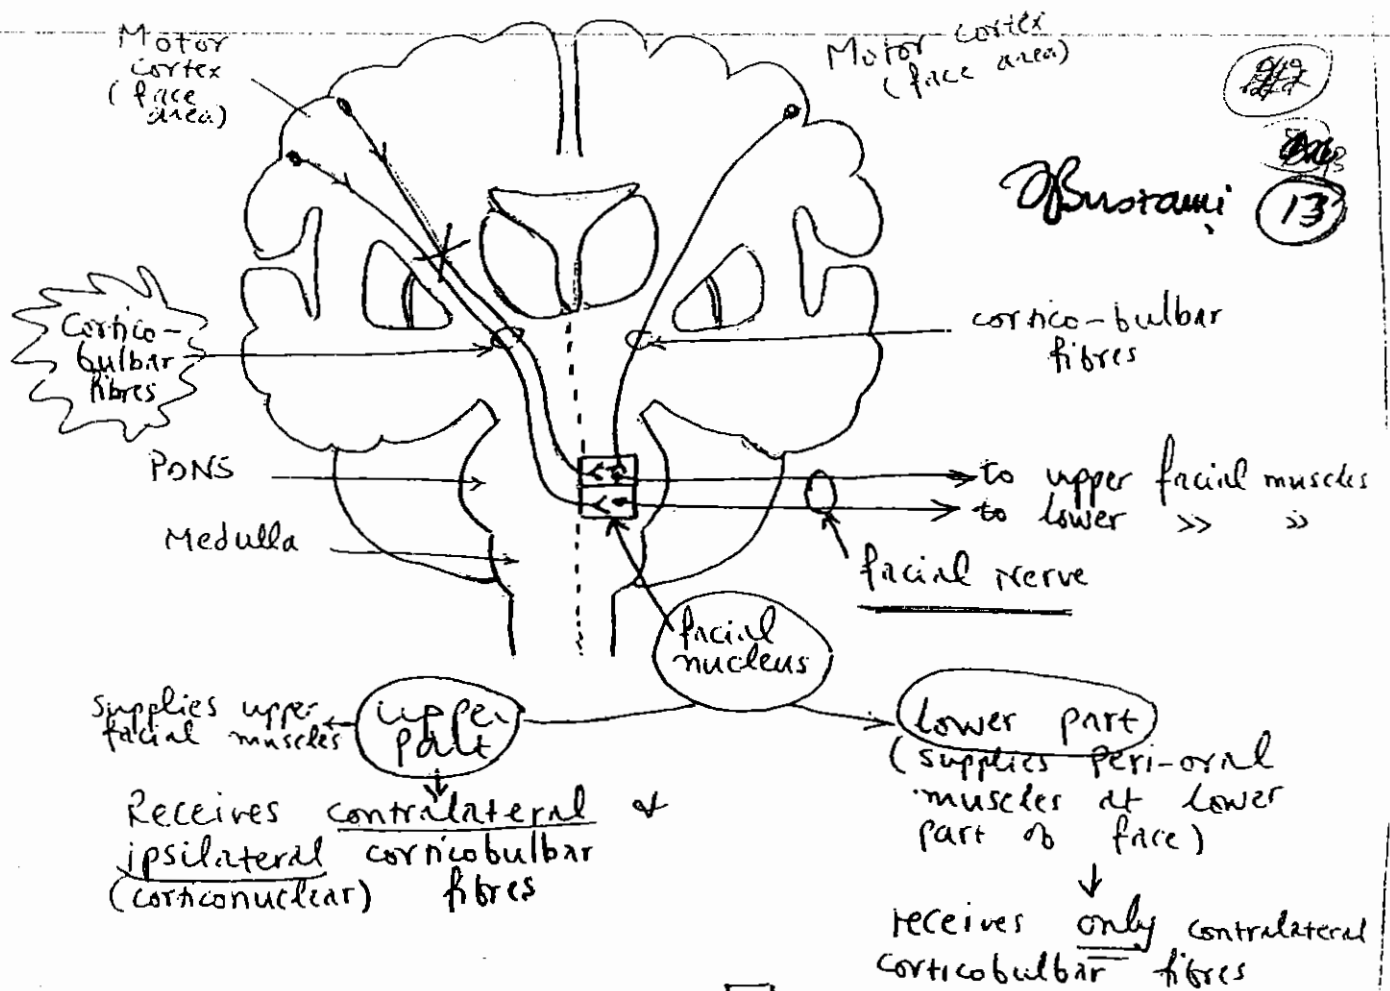 Motor
cortex
(face
area)
Motor cortex
(face area)
Bustami
13
Cortico-
bulbar
fibres
cortico-bulbar
fibres
PONS
Medulla
to upper facial muscles
to lower » »
facial nerve
facial
nucleus
supplies upper
facial muscles
upper
part
Receives contralateral &
ipsilateral corticobulbar
(corticonuclear) fibres
lower part
(supplies peri-oral
muscles at lower
part of face)
receives only contralateral
corticobulbar fibres